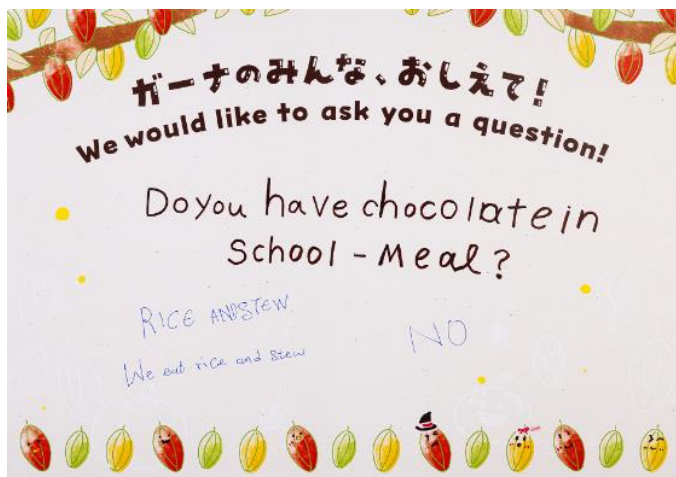 ガーナのみんな、おしえて!
We would like to ask you a question!
Do you have chocolate in
School - Meal?
RICE AND STEW
NO
We eat rice and stew